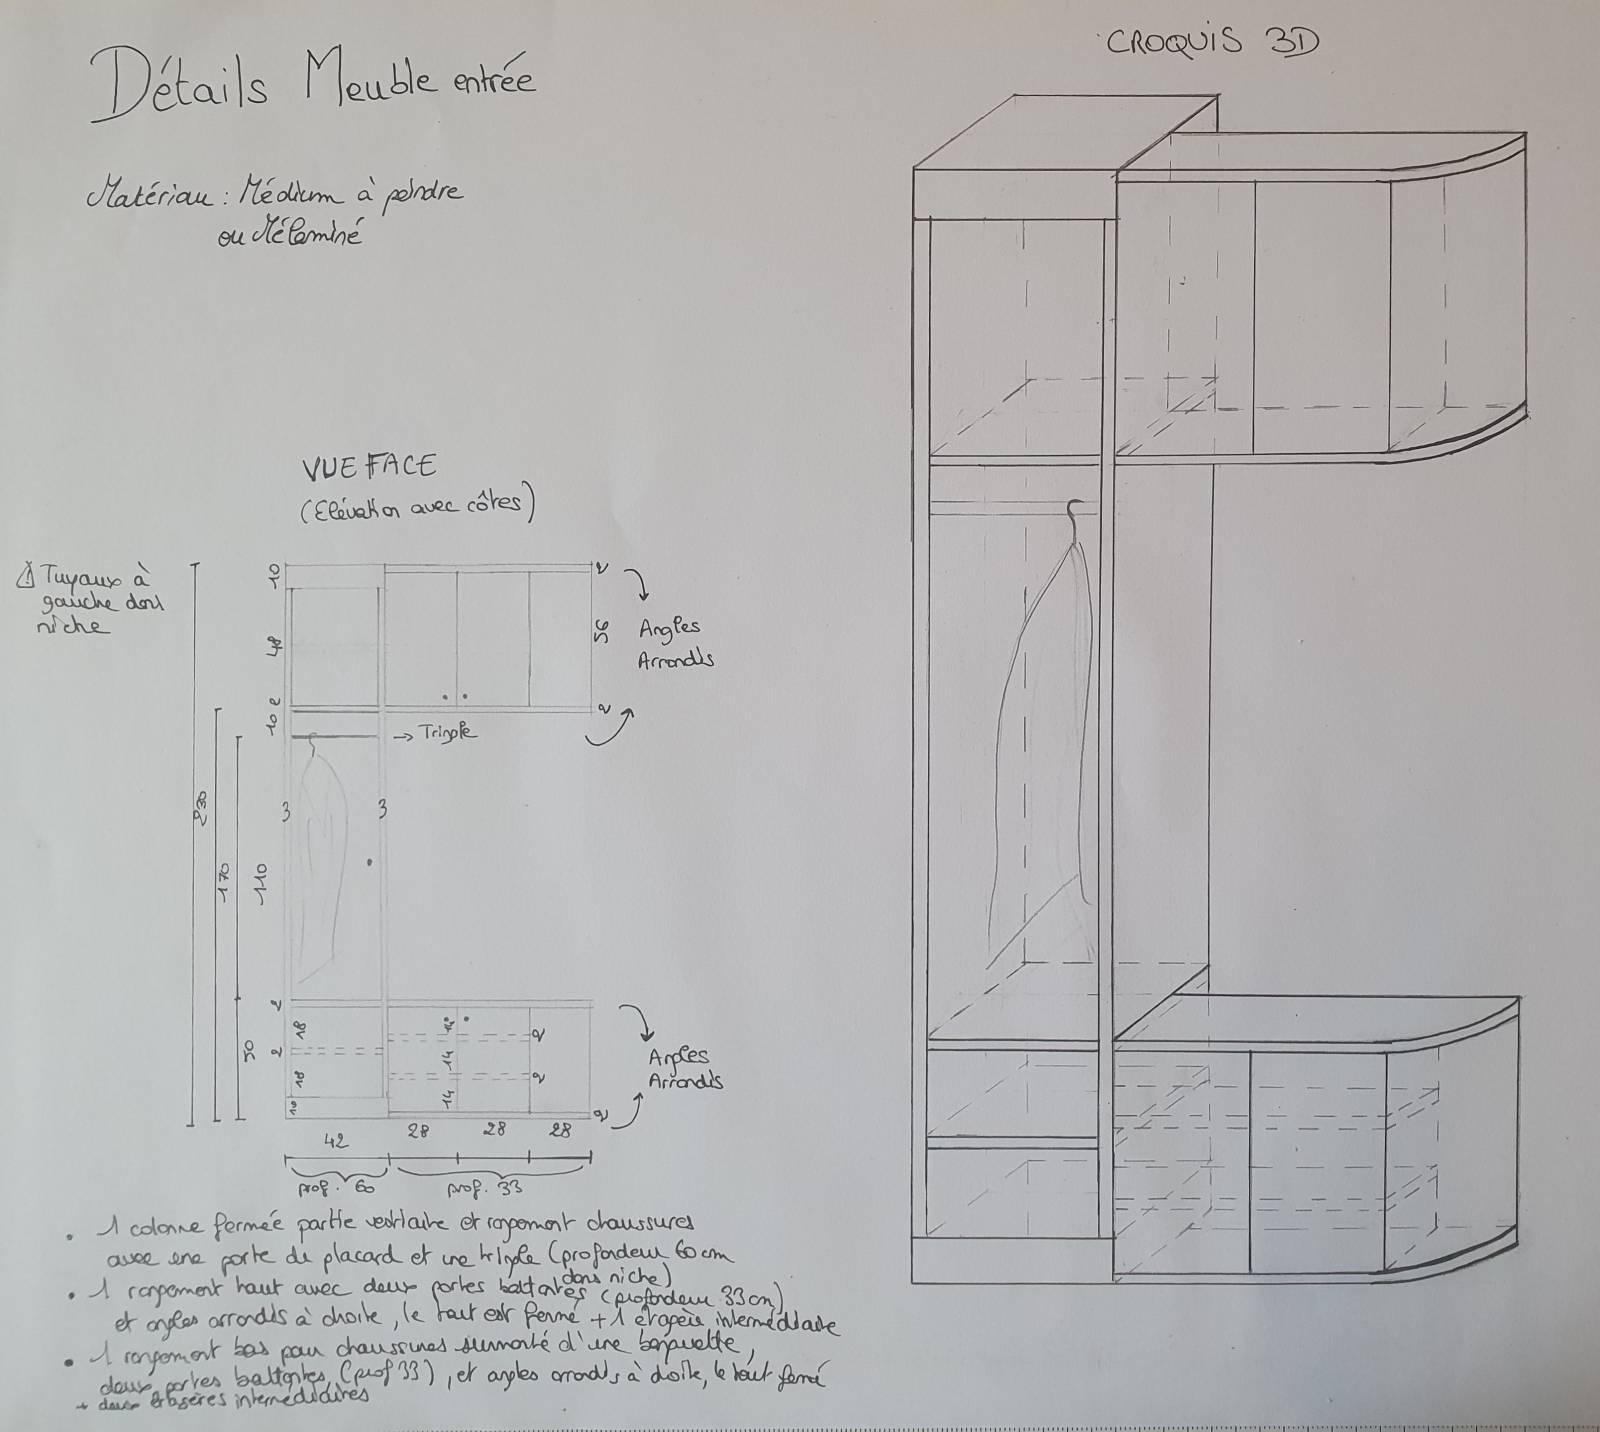 Détails Meuble entrée
CROQUIS 3D
Matériau : Médium à peindre
ou Mélaminé
VUE FACE
(Elévation avec côtes)
⚠ Tuyaux à
gauche dans
niche
10
48
2
10
2
56
2
Angles
Arrondis
→ Tringle
3
3
230
170
110
2
18
2
18
10
50
14
14
14
2
2
2
Angles
Arrondis
42
28
28
28
prof. 60
prof. 33
• 1 colonne fermée partie vestiaire et rangement chaussures
avec une porte de placard et une tringle (profondeur 60 cm
dans niche)
• 1 rangement haut avec deux portes battantes (profondeur 33 cm)
et angles arrondis à droite, le tout est fermé + 1 étagère intermédiaire
• 1 rangement bas pour chaussures surmonté d'une banquette,
deux portes battantes, (prof 33), et angles arrondis à droite, le tout fermé
+ deux étagères intermédiaires